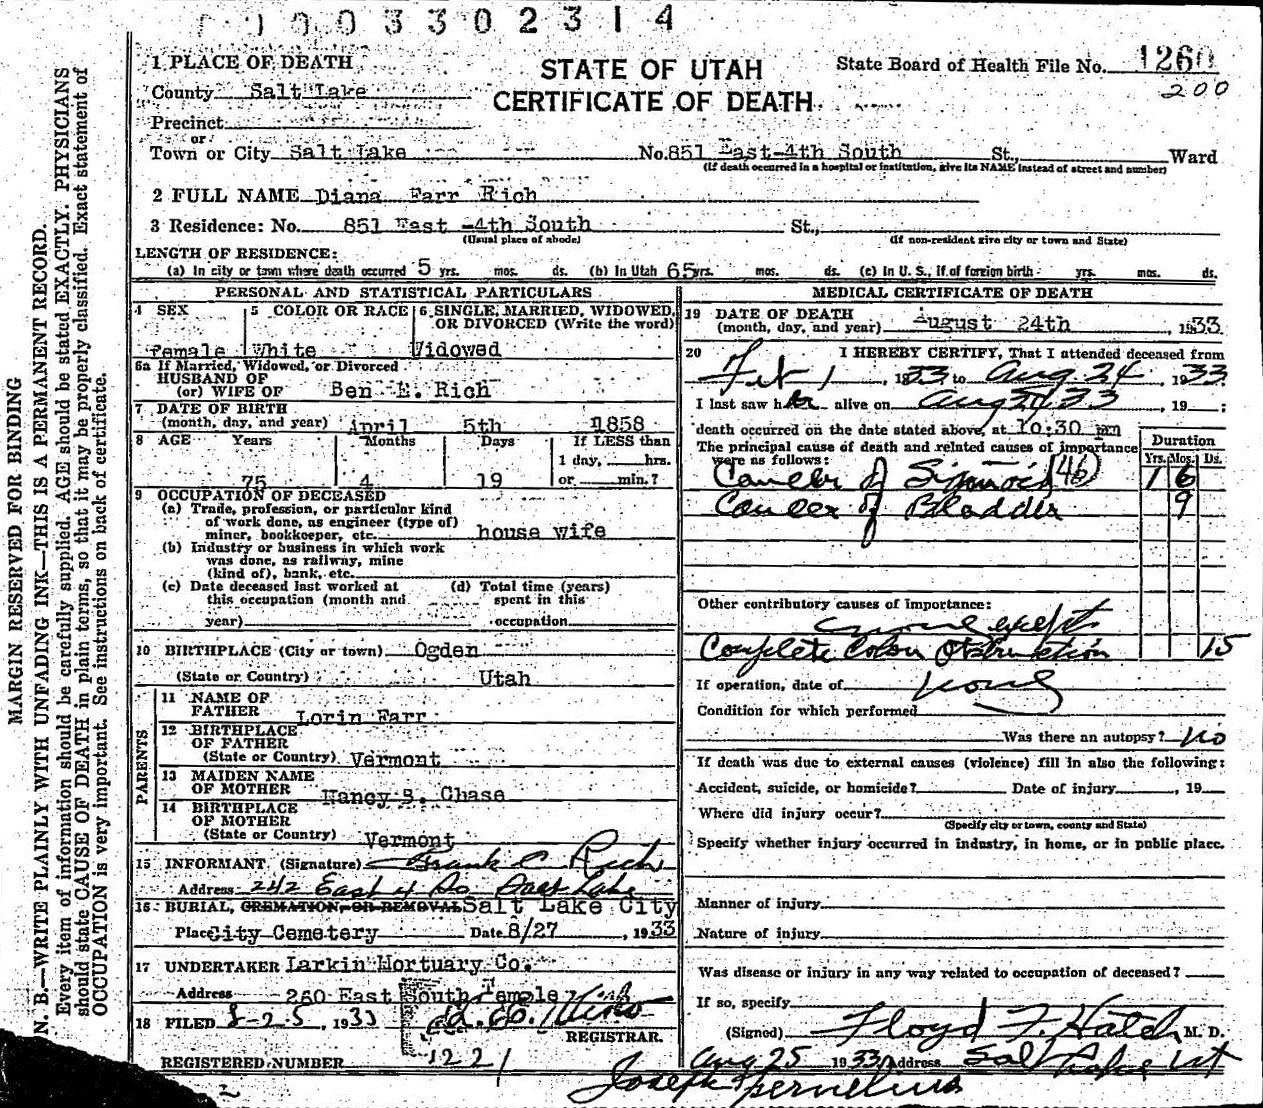 0 0 3 3 0 2 3 1 4
MARGIN RESERVED FOR BINDING
N. B.—WRITE PLAINLY WITH UNFADING INK—THIS IS A PERMANENT RECORD.
Every item of information should be carefully supplied. AGE should be stated EXACTLY. PHYSICIANS
should state CAUSE OF DEATH in plain terms, so that it may be properly classified. Exact statement of
OCCUPATION is very important. See instructions on back of certificate.
STATE OF UTAH
CERTIFICATE OF DEATH
State Board of Health File No. 1260
200
1 PLACE OF DEATH
County Salt Lake
Precinct
or
Town or City Salt Lake No. 851 East-4th South St., Ward
(If death occurred in a hospital or institution, give its NAME instead of street and number)
2 FULL NAME Diana Farr Rich
3 Residence: No. 851 East -4th South St.,
(Usual place of abode) (If non-resident give city or town and State)
LENGTH OF RESIDENCE:
(a) In city or town where death occurred 5 yrs. mos. ds. (b) In Utah 65 yrs. mos. ds. (c) In U. S., if of foreign birth yrs. mos. ds.
PERSONAL AND STATISTICAL PARTICULARS
4 SEX
female
5 COLOR OR RACE
White
6 SINGLE, MARRIED, WIDOWED,
OR DIVORCED (Write the word)
Widowed
6a If Married, Widowed, or Divorced
HUSBAND OF
(or) WIFE OF Ben E. Rich
7 DATE OF BIRTH
(month, day, and year) April 5th 1858
8 AGE Years Months Days If LESS than
1 day, hrs.
75 4 19 or min.?
9 OCCUPATION OF DECEASED
(a) Trade, profession, or particular kind
of work done, as engineer (type of)
miner, bookkeeper, etc. house wife
(b) Industry or business in which work
was done, as railway, mine
(kind of), bank, etc.
(c) Date deceased last worked at
this occupation (month and
year)
(d) Total time (years)
spent in this
occupation
10 BIRTHPLACE (City or town) Ogden
(State or Country) Utah
PARENTS
11 NAME OF
FATHER Lorin Farr
12 BIRTHPLACE
OF FATHER
(State or Country) Vermont
13 MAIDEN NAME
OF MOTHER Nancy B. Chase
14 BIRTHPLACE
OF MOTHER
(State or Country) Vermont
15 INFORMANT, (Signature) Frank C Rich
Address 242 East 4 So Salt Lake
16 BURIAL, CREMATION, OR REMOVAL Salt Lake City
Place City Cemetery Date 8/27, 1933
17 UNDERTAKER Larkin Mortuary Co.
Address 260 East South Temple
18 FILED 8-25, 1933
REGISTRAR.
REGISTERED NUMBER 1221
MEDICAL CERTIFICATE OF DEATH
19 DATE OF DEATH
(month, day, and year) August 24th, 1933
20 I HEREBY CERTIFY, That I attended deceased from
Feb 1, 1933 to Aug 24 1933
I last saw her alive on Aug 24 33, 19 ;
death occurred on the date stated above, at 10:30 pm
The principal cause of death and related causes of importance
were as follows:
Duration
Yrs. Mos. Ds.
Cancer of Sigmoid (46) 1 6
Cancer of Bladder 9
Other contributory causes of importance:
none except
Complete Colon Obstruction 15
If operation, date of none
Condition for which performed
Was there an autopsy? No
If death was due to external causes (violence) fill in also the following:
Accident, suicide, or homicide? Date of injury , 19
Where did injury occur?
(Specify city or town, county and State)
Specify whether injury occurred in industry, in home, or in public place.
Manner of injury
Nature of injury
Was disease or injury in any way related to occupation of deceased?
If so, specify
(Signed) Floyd F. Hatch M. D.
Aug 25 1933 Address Salt Lake Ut
Joseph